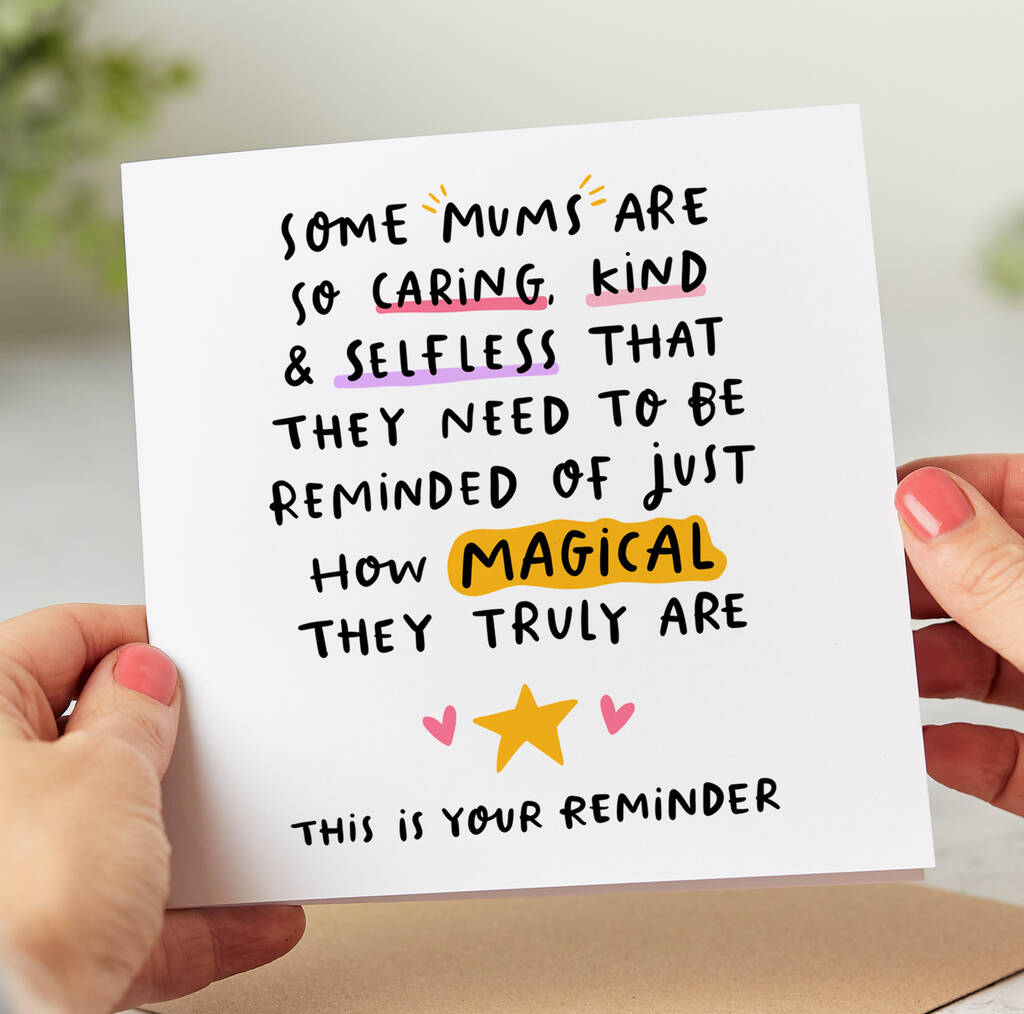 SOME MUMS ARE
SO CARING, KIND
& SELFLESS THAT
THEY NEED TO BE
REMINDED OF JUST
HOW MAGICAL
THEY TRULY ARE
THIS IS YOUR REMINDER